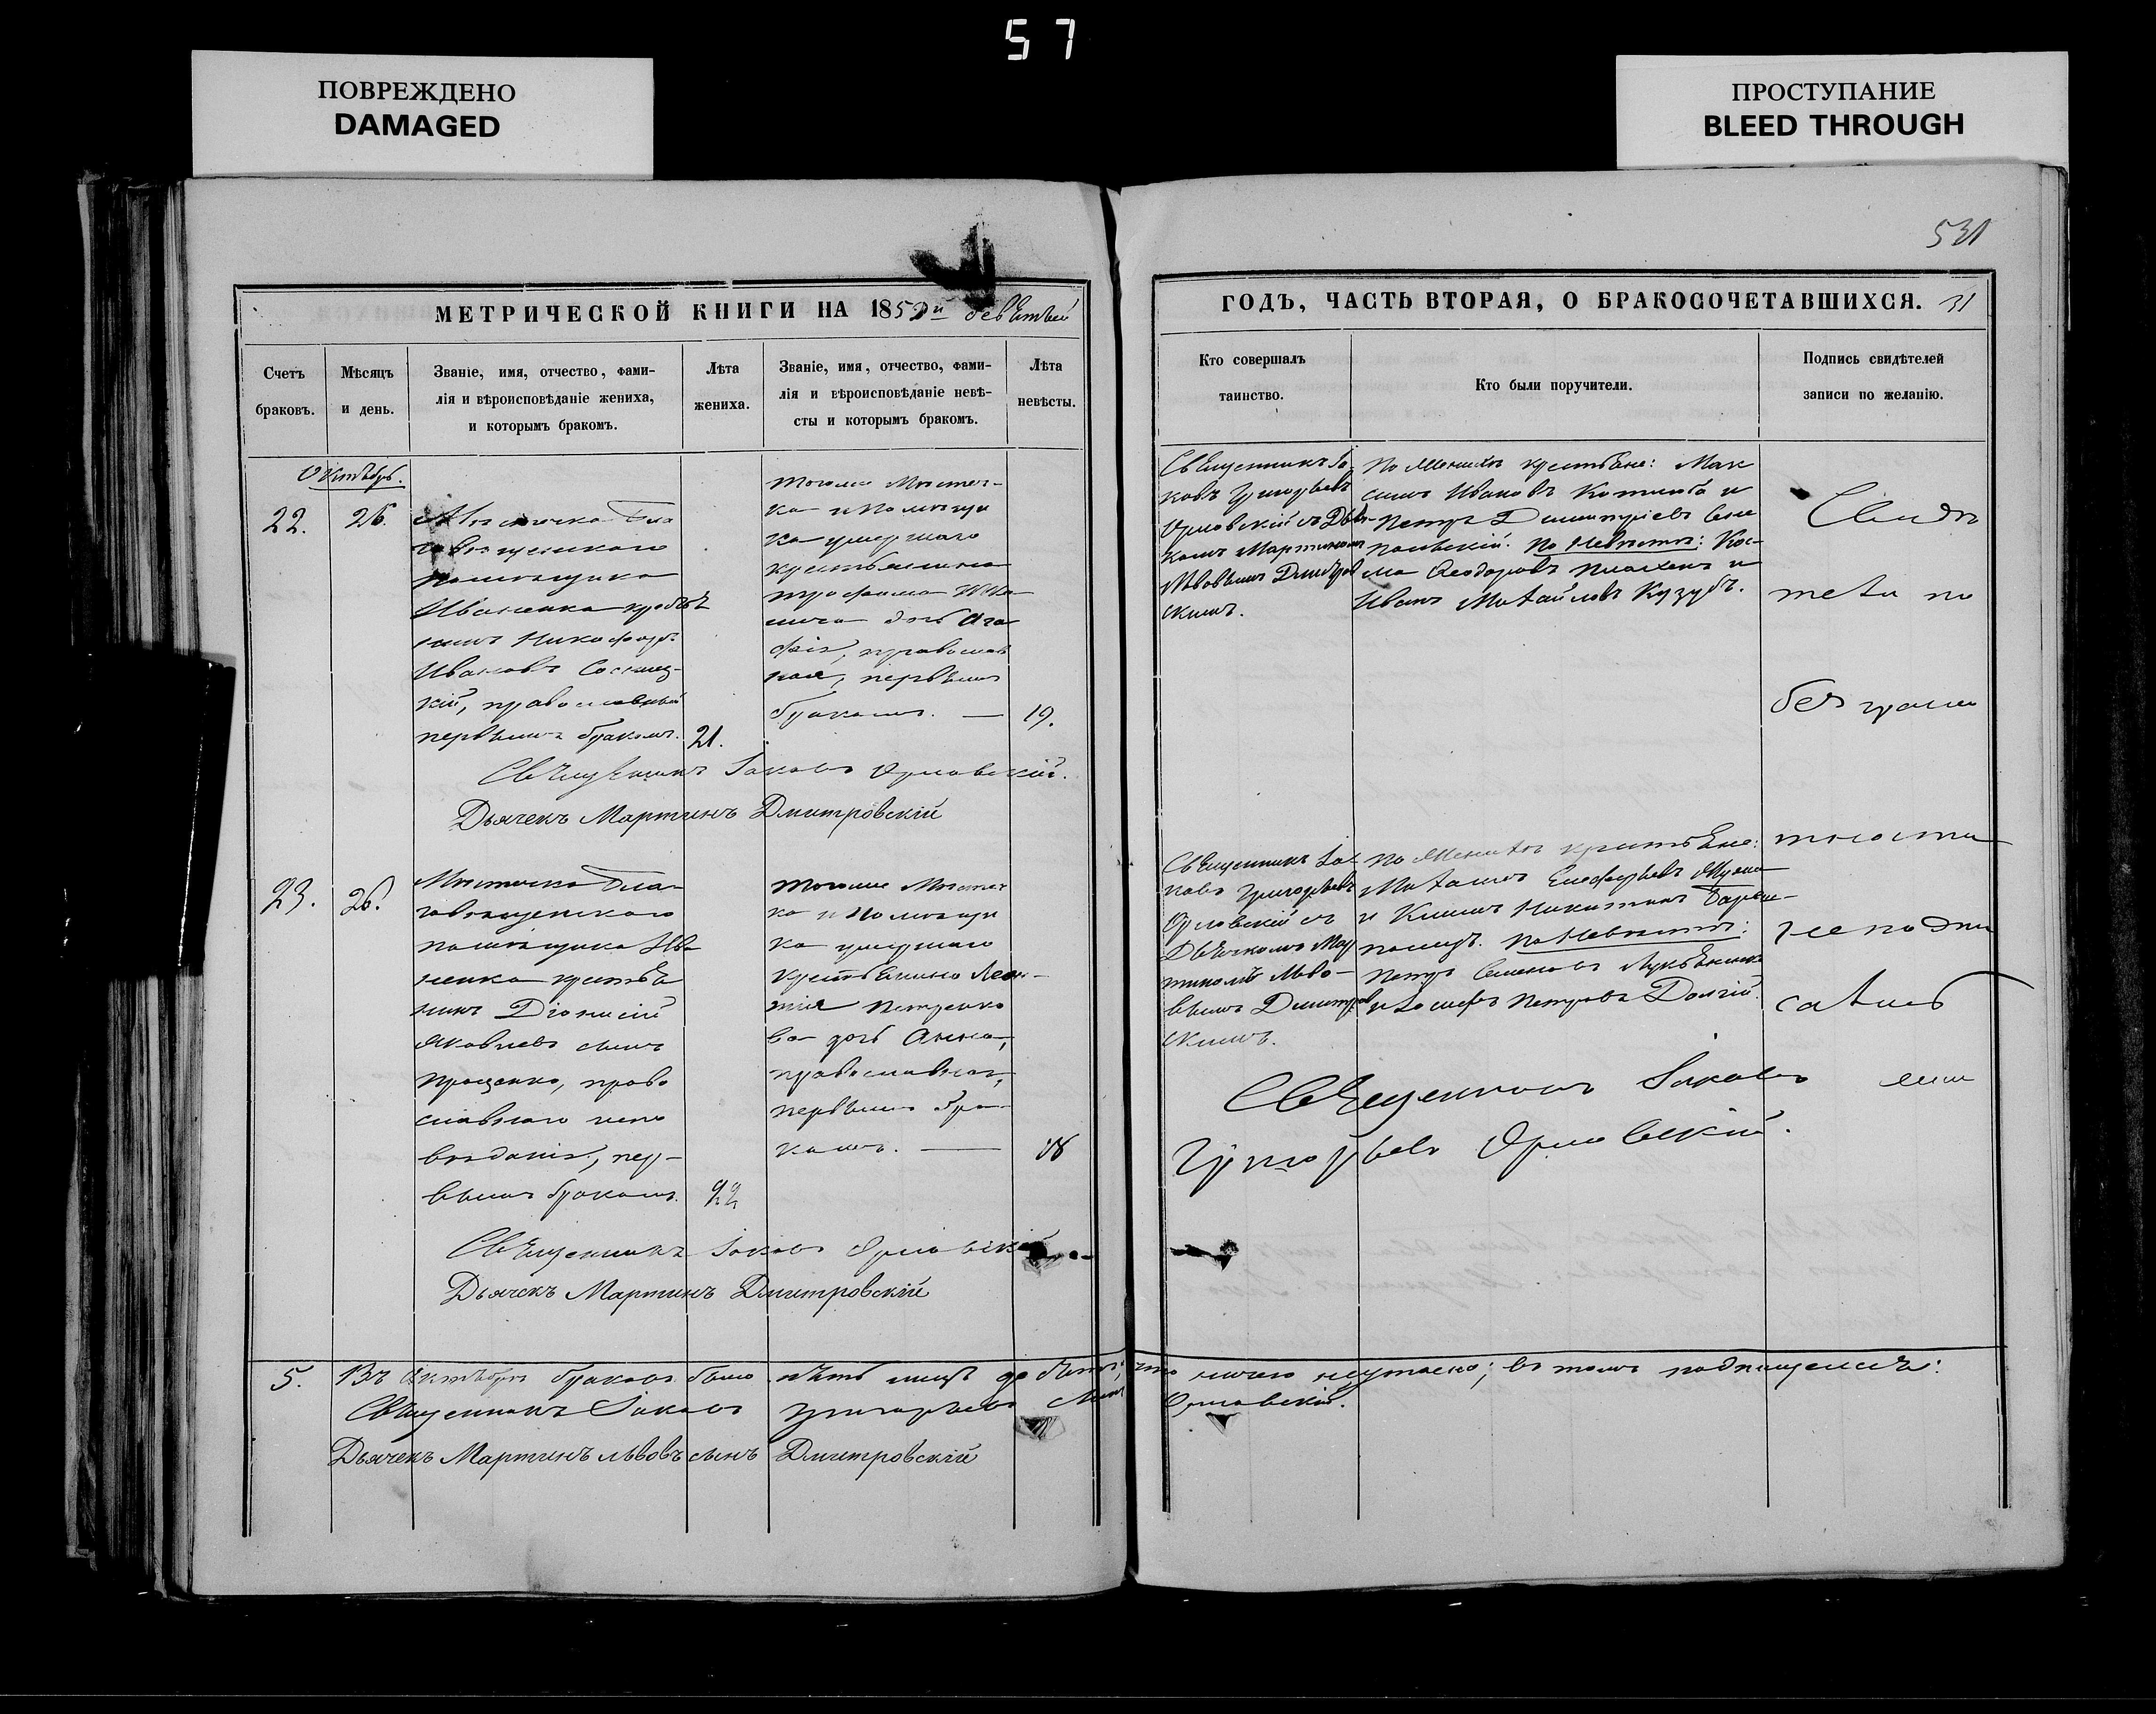 57
ПОВРЕЖДЕНО
DAMAGED
ПРОСТУПАНИЕ
BLEED THROUGH
531
МЕТРИЧЕСКОЙ КНИГИ НА 185
Счетъ
браковъ.
Мѣсяцъ
и день.
Званіе, имя, отчество, фами-
лія и вѣроисповѣданіе жениха,
и которымъ бракомъ.
Лѣта
жениха.
Званіе, имя, отчество, фами-
лія и вѣроисповѣданіе невѣ-
сты и которымъ бракомъ.
Лѣта
невѣсты.
Октябрь.
22.
26.
Мѣстечка Бла
говѣщенскаго
помѣщика
Иваненка
Никифоръ
Ивановъ
кій, православный
первымъ бракомъ.
21.
тогоже Мѣстеч-
ка и Помѣщи
ка умершаго
крестьянина
Трофима
дочь Ага
фія, православ
ная, первымъ
бракомъ. —
19.
Священникъ Іаковъ Орловскій.
Дьячекъ Мартинъ Дмитровскій
23.
26.
Мѣстечка Бла-
говѣщенскаго
помѣщика Ива
ненка крестья
нинъ Діонисій
Яковлевъ сынъ
Проценко, право
славнаго испо
вѣданія, пер-
вымъ бракомъ.
22
тогоже Мѣстеч
ка и Помѣщи
ка умершаго
крестьянина Леон-
тія Петренко
ва дочь Анна,
православная,
первымъ бра-
комъ. —
18
Священникъ Іаковъ Орловскій
Дьячекъ Мартинъ Дмитровскій
5.
Въ Октябрѣ браковъ было пять
Священникъ Іаковъ Григорьевъ сынъ
Дьячекъ Мартинъ Львовъ сынъ Дмитровскій
ГОДЪ, ЧАСТЬ ВТОРАЯ, О БРАКОСОЧЕТАВШИХСЯ. 31
Кто совершалъ
таинство.
Кто были поручители.
Подпись свидѣтелей
записи по желанію.
Священникъ Іа-
ковъ Григорьевъ
Орловскій съ Дья-
комъ Мартиномъ
Львовымъ Дмитров
скимъ.
По Женихѣ крестьяне: Мак
симъ Ивановъ и
Петръ Димитріевъ
По Невѣстѣ: Кос-
ма Ѳеодоровъ и
Иванъ Михайловъ Кузубъ.
Свидѣ
тели по
безграмо
тности
неподпи
сались
Священникъ Іа-
ковъ Григорьевъ
Орловскій съ
Дьячкомъ Мар
тиномъ Льво-
вымъ Димитров
скимъ.
По Женихѣ крестьяне:
и Климъ Никитинъ
По Невѣстѣ:
Петръ Семеновъ
и Іосифъ Петровъ Долгій.
Священникъ Іаковъ
Григорьевъ Орловскій.
ничего неутаено; въ томъ подпишемся:
Орловскій.